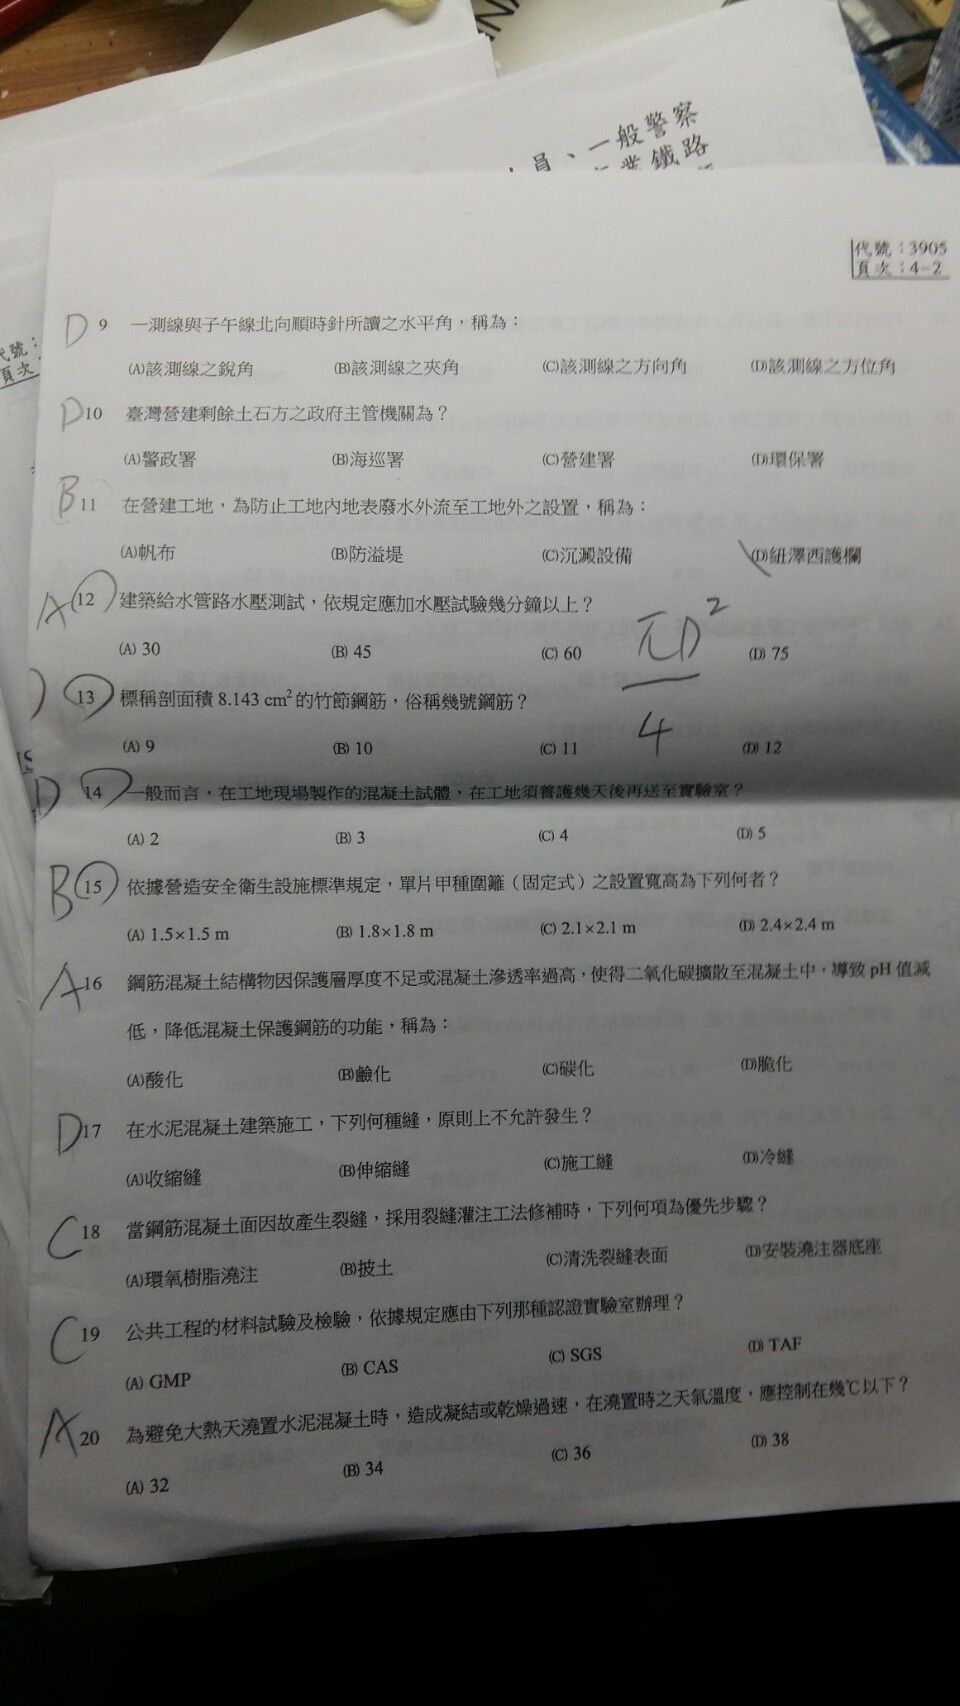 員、一般警察
業鐵路
代號：3905
頁次：4-2
代號：
頁次
D 9 一測線與子午線北向順時針所讀之水平角，稱為：
(A)該測線之銳角 (B)該測線之夾角 (C)該測線之方向角 (D)該測線之方位角
D 10 臺灣營建剩餘土石方之政府主管機關為？
(A)警政署 (B)海巡署 (C)營建署 (D)環保署
B 11 在營建工地，為防止工地內地表廢水外流至工地外之設置，稱為：
(A)帆布 (B)防溢堤 (C)沉澱設備 (D)紐澤西護欄
A 12 建築給水管路水壓測試，依規定應加水壓試驗幾分鐘以上？
(A) 30 (B) 45 (C) 60 (D) 75
πD²
4
13 標稱剖面積 8.143 cm² 的竹節鋼筋，俗稱幾號鋼筋？
(A) 9 (B) 10 (C) 11 (D) 12
D 14 一般而言，在工地現場製作的混凝土試體，在工地須養護幾天後再送至實驗室？
(A) 2 (B) 3 (C) 4 (D) 5
B 15 依據營造安全衛生設施標準規定，單片甲種圍籬（固定式）之設置寬高為下列何者？
(A) 1.5×1.5 m (B) 1.8×1.8 m (C) 2.1×2.1 m (D) 2.4×2.4 m
A 16 鋼筋混凝土結構物因保護層厚度不足或混凝土滲透率過高，使得二氧化碳擴散至混凝土中，導致 pH 值減
低，降低混凝土保護鋼筋的功能，稱為：
(A)酸化 (B)鹼化 (C)碳化 (D)脆化
D 17 在水泥混凝土建築施工，下列何種縫，原則上不允許發生？
(A)收縮縫 (B)伸縮縫 (C)施工縫 (D)冷縫
C 18 當鋼筋混凝土面因故產生裂縫，採用裂縫灌注工法修補時，下列何項為優先步驟？
(A)環氧樹脂澆注 (B)披土 (C)清洗裂縫表面 (D)安裝澆注器底座
C 19 公共工程的材料試驗及檢驗，依據規定應由下列那種認證實驗室辦理？
(A) GMP (B) CAS (C) SGS (D) TAF
A 20 為避免大熱天澆置水泥混凝土時，造成凝結或乾燥過速，在澆置時之天氣溫度，應控制在幾℃以下？
(A) 32 (B) 34 (C) 36 (D) 38